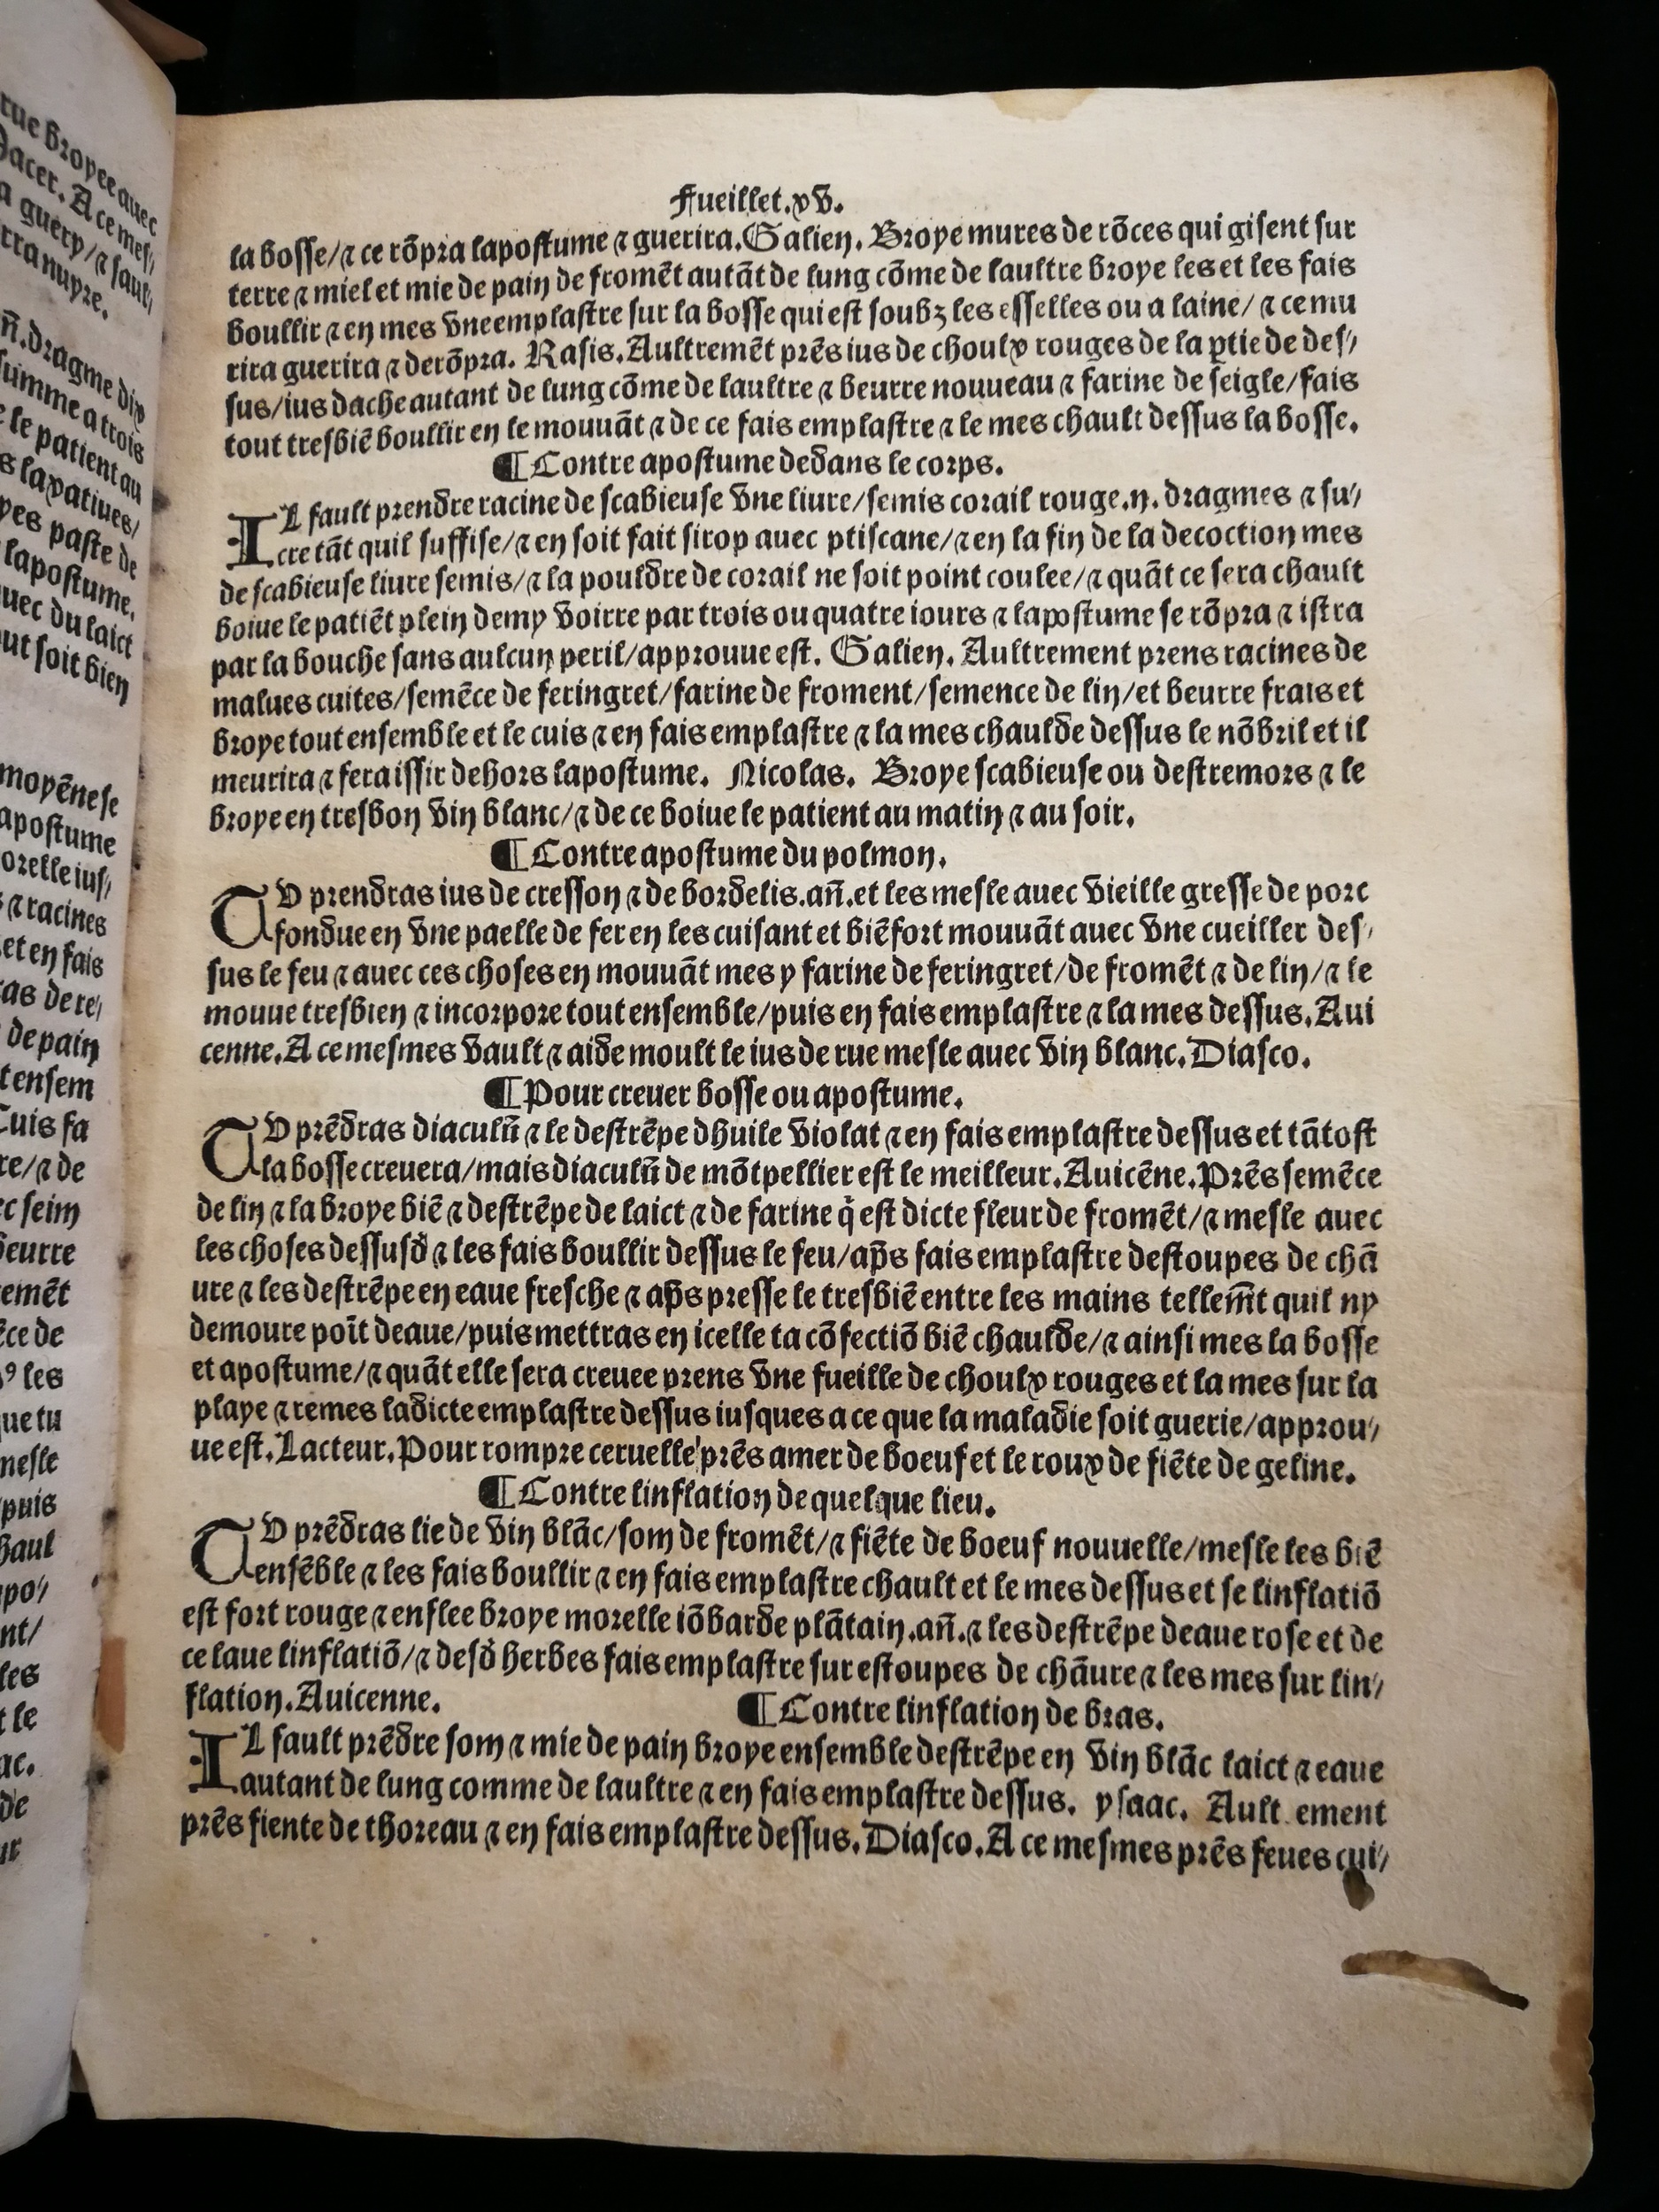 rue broyee auec
dacer. A ce mes/
a guery/⁊ sault
rra nupre.
n̄. dragme dix
summe a trois
le patient au
s laxatiues/
pes paste de
lapostume.
uec du laict
ut soit bien
moyēnese
apostume
orelle ius/
⁊ racines
et en fais
as de re/
de pain
t ensem
Cuis fa
re/⁊ de
c seim
beurre
emēt
ēce de
les
ue tu
mesle
puis
haul
po/
nt/
les
t le
ac.
de
Fueillet.xv.
la bosse/⁊ ce rōpra lapostume ⁊ guerira. Galien. Broye mures de rōces qui gisent sur
terre ⁊ miel et mie de pain de fromēt autāt de lung cōme de laultre broye les et les fais
boullir ⁊ en mes vne emplastre sur la bosse qui est soubz les esselles ou a laine/ ⁊ ce mu
rira guerira ⁊ derōpra. Rasis. Aultremēt prēs ius de choulx rouges de la ꝑtie de des/
sus/ius dache autant de lung cōme de laultre ⁊ beurre nouueau ⁊ farine de seigle/fais
tout tresbiē boullir en le mouuāt ⁊ de ce fais emplastre ⁊ le mes chault dessus la bosse.
¶ Contre apostume dedans le corps.
Il fault prendre racine de scabieuse vne liure/semis corail rouge.ii. dragmes ⁊ su/
cre tāt quil suffise/⁊ en soit fait sirop auec ptiscane/⁊ en la fin de la decoction mes
de scabieuse liure semis/⁊ la pouldre de corail ne soit point coulee/⁊ quāt ce sera chault
boiue le patiēt plein demy voirre par trois ou quatre iours ⁊ lapostume se rōpra ⁊ istra
par la bouche sans aulcun peril/approuue est. Galien. Aultrement prens racines de
malues cuites/semēce de feringret/farine de froment/semence de lin/et beurre frais et
broye tout ensemble et le cuis ⁊ en fais emplastre ⁊ la mes chaulde dessus le nōbril et il
meurira ⁊ fera issir dehors lapostume. Nicolas. Broye scabieuse ou destremors ⁊ le
broye en tresbon vin blanc/⁊ de ce boiue le patient au matin ⁊ au soir.
¶ Contre apostume du polmon.
TV prendras ius de cresson ⁊ de bordelis.añ.et les mesle auec vieille gresse de porc
fondue en vne paelle de fer en les cuisant et biē fort mouuāt auec vne cueiller des/
sus le feu ⁊ auec ces choses en mouuāt mes y farine de feringret/de fromēt ⁊ de lin/⁊ le
mouue tresbien ⁊ incorpore tout ensemble/puis en fais emplastre ⁊ la mes dessus. Aui
cenne. A ce mesmes vault ⁊ aide moult le ius de rue mesle auec vin blanc. Diasco.
¶ Pour creuer bosse ou apostume.
TV prēdras diaculū ⁊ le destrēpe dhuile violat ⁊ en fais emplastre dessus et tātost
la bosse creuera/mais diaculū de mōtpellier est le meilleur. Auicēne. Prēs semēce
de lin ⁊ la broye biē ⁊ destrēpe de laict ⁊ de farine q̄ est dicte fleur de fromēt/⁊ mesle auec
les choses dessusd̄ ⁊ les fais boullir dessus le feu/ap̄s fais emplastre destoupes de chā
ure ⁊ les destrēpe en eaue fresche ⁊ ap̄s presse le tresbiē entre les mains tellem̄t quil ny
demoure poīt deaue/puis mettras en icelle ta cōfectiō biē chaulde/⁊ ainsi mes la bosse
et apostume/⁊ quāt elle sera creuee prens vne fueille de choulx rouges et la mes sur la
playe ⁊ remes ladicte emplastre dessus iusques a ce que la maladie soit guerie/approu/
ue est. Lacteur. Pour rompre ceruelle prēs amer de boeuf et le roux de fiēte de geline.
¶ Contre linflation de quelque lieu.
TV prēdras lie de vin blāc/som de fromēt/⁊ fiēte de boeuf nouuelle/mesle les biē
ensēble ⁊ les fais boullir ⁊ en fais emplastre chault et le mes dessus et se linflatiō
est fort rouge ⁊ enflee broye morelle iōbarde plātain.añ.⁊ les destrēpe deaue rose et de
ce laue linflatiō/⁊ desd̄ herbes fais emplastre sur estoupes de chāure ⁊ les mes sur lin/
flation. Auicenne. ¶ Contre linflation de bras.
Il fault prēdre som ⁊ mie de pain broye ensemble destrēpe en vin blāc laict ⁊ eaue
autant de lung comme de laultre ⁊ en fais emplastre dessus. ysaac. Ault ement
prēs fiente de thoreau ⁊ en fais emplastre dessus. Diasco. A ce mesmes prēs feues cui/